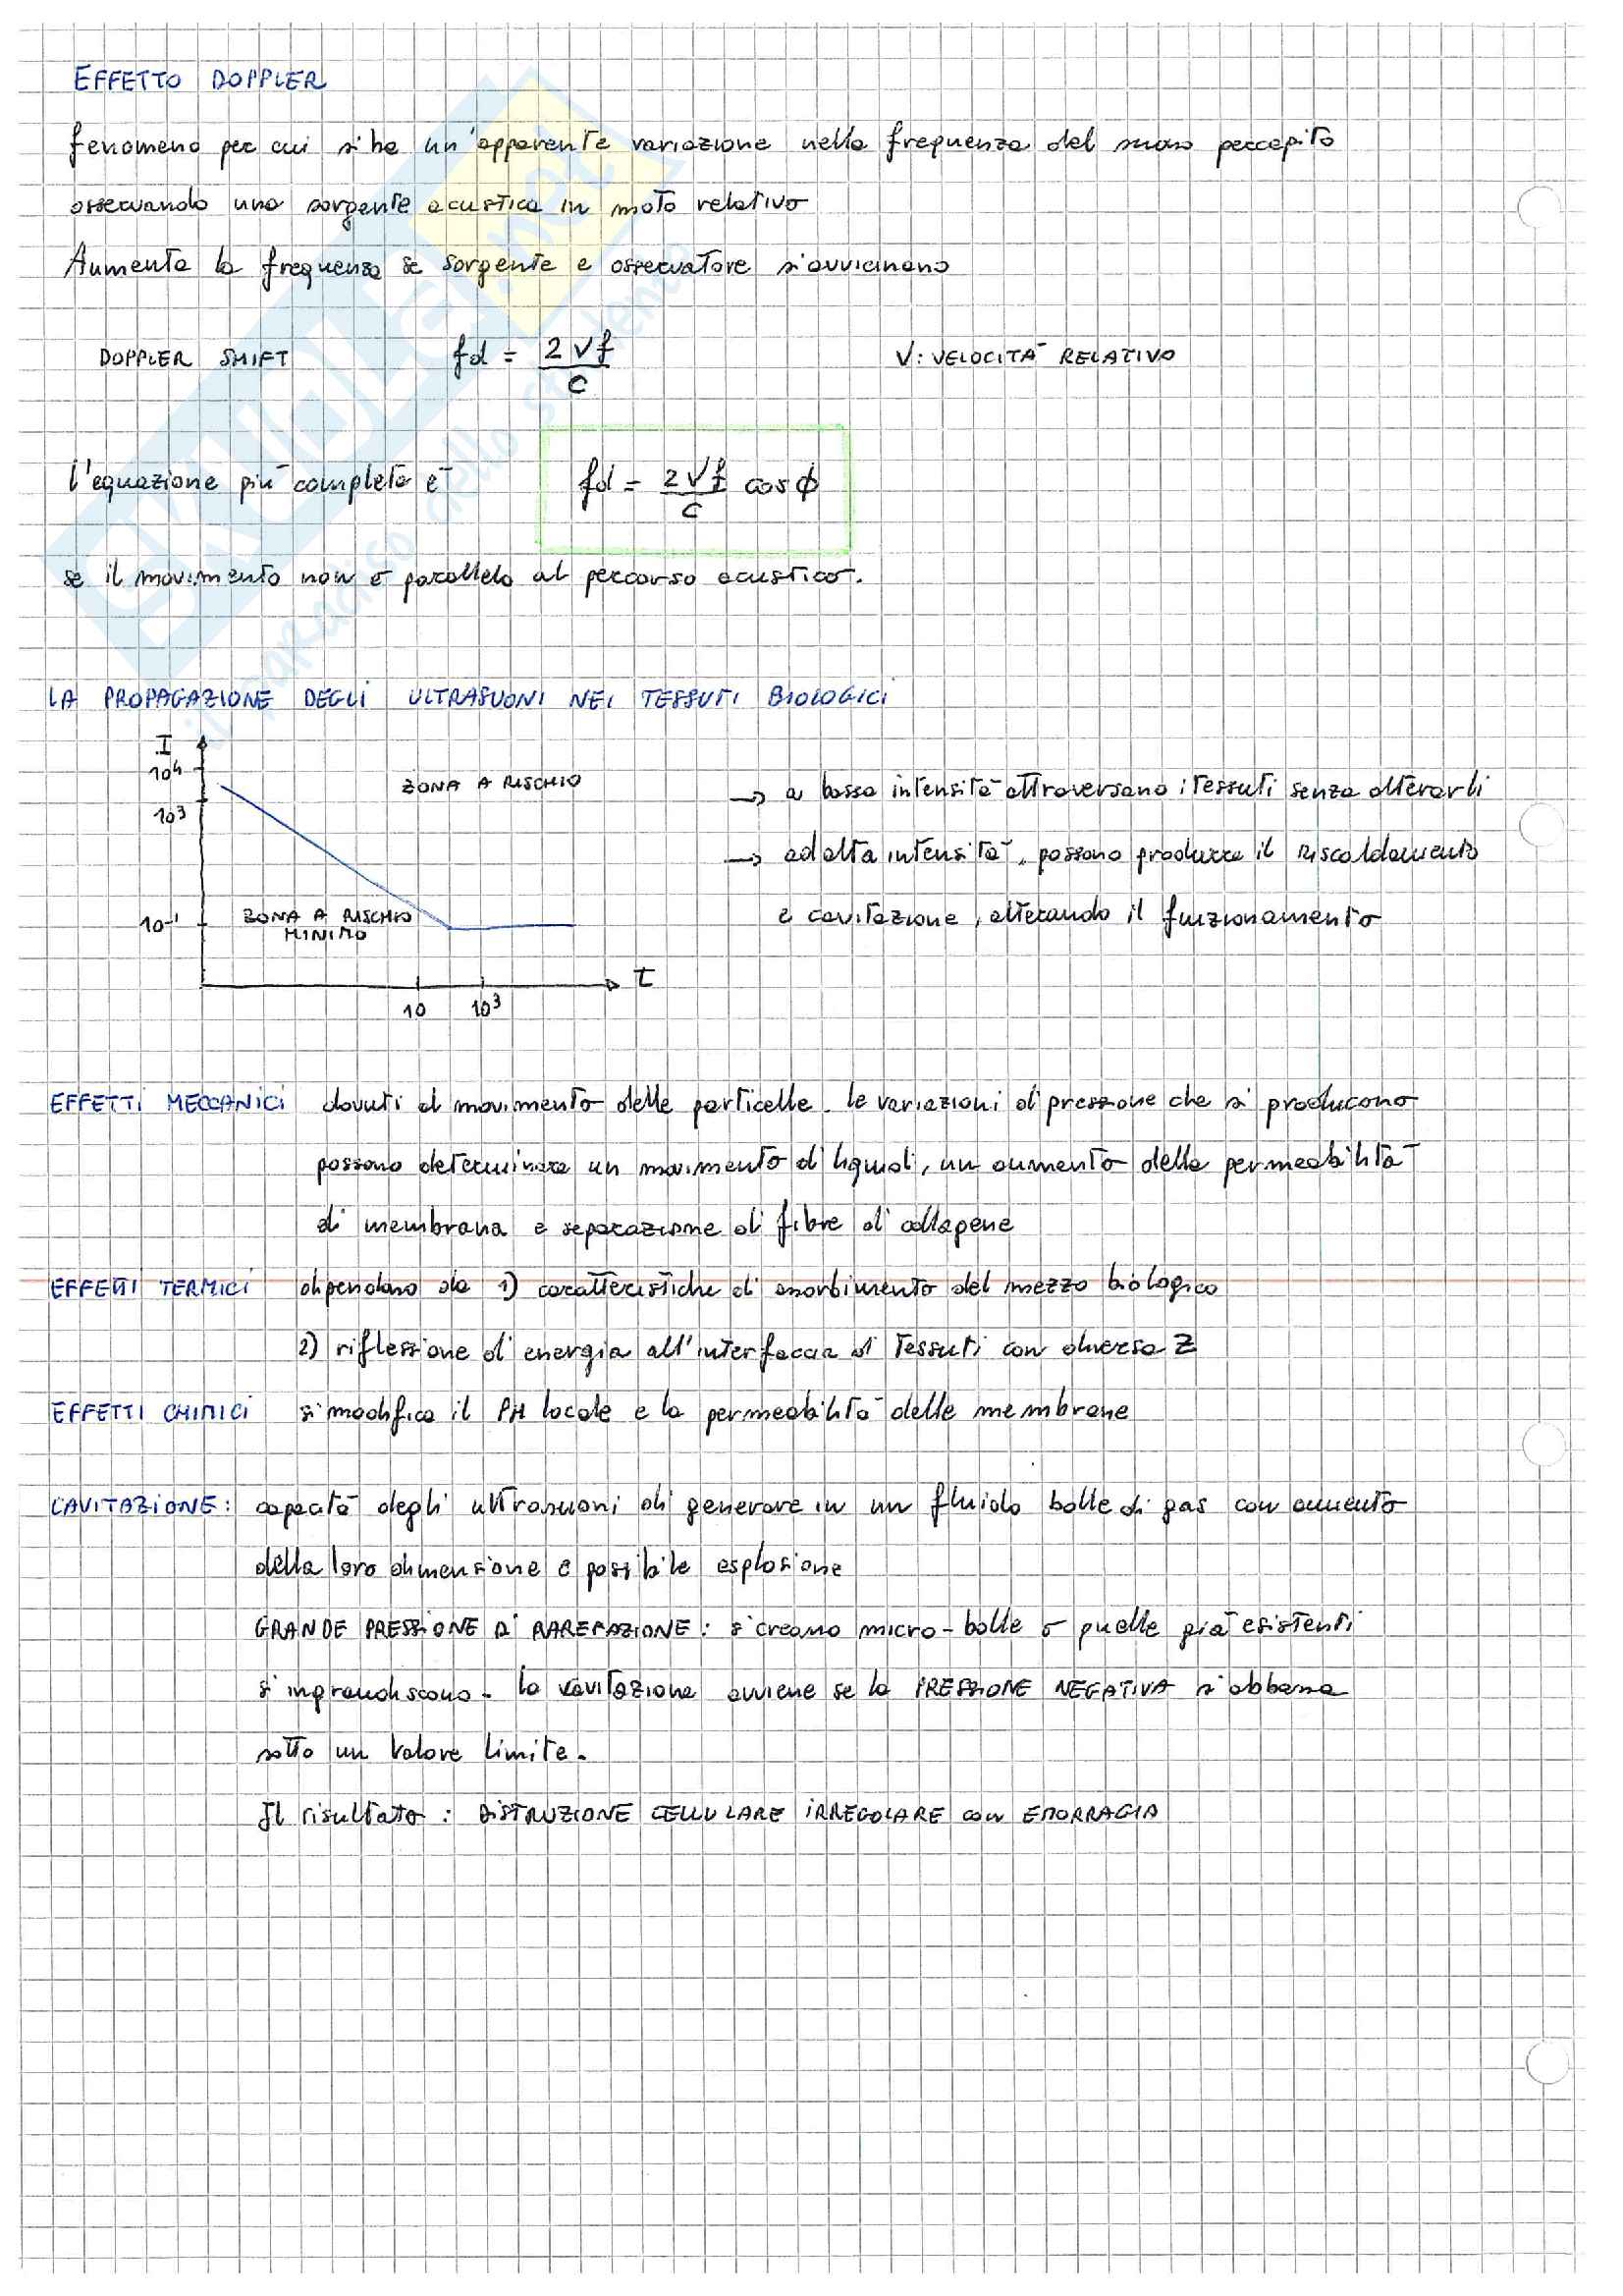 EFFETTO DOPPLER
fenomeno per cui si ha un'apparente variazione nella frequenza del suono percepito
osservando una sorgente acustica in moto relativo
Aumenta la frequenza se sorgente e osservatore s'avvicinano
DOPPLER SHIFT fd = 2Vf/c V: VELOCITÀ RELATIVO
l'equazione più completa è fd = 2Vf/c cos φ
se il movimento non è parallelo al percorso acustico.
LA PROPAGAZIONE DEGLI ULTRASUONI NEI TESSUTI BIOLOGICI
I
10⁴ ZONA A RISCHIO → a bassa intensità attraversano i tessuti senza alterarli
10³
→ ad alta intensità, possono produrre il riscaldamento
10⁻¹ ZONA A RISCHIO MINIMO e cavitazione, alterando il funzionamento
τ
10 10³
EFFETTI MECCANICI dovuti al movimento delle particelle. le variazioni di pressione che si producono
possono determinare un movimento di liquidi, un aumento della permeabilità
di membrana e separazione di fibre di collagene
EFFETTI TERMICI dipendono da 1) caratteristiche di assorbimento del mezzo biologico
2) riflessione di energia all'interfaccia di tessuti con diversa Z
EFFETTI CHIMICI si modifica il PH locale e la permeabilità delle membrane
CAVITAZIONE: capacità degli ultrasuoni di generare in un fluido bolle di gas con aumento
della loro dimensione e possibile esplosione
GRANDE PRESSIONE DI RAREFAZIONE: si creano micro-bolle o quelle già esistenti
si ingrandiscono. la cavitazione avviene se la PRESSIONE NEGATIVA s'abbassa
sotto un valore limite.
Il risultato: DISTRUZIONE CELLULARE IRREGOLARE con EMORRAGIA